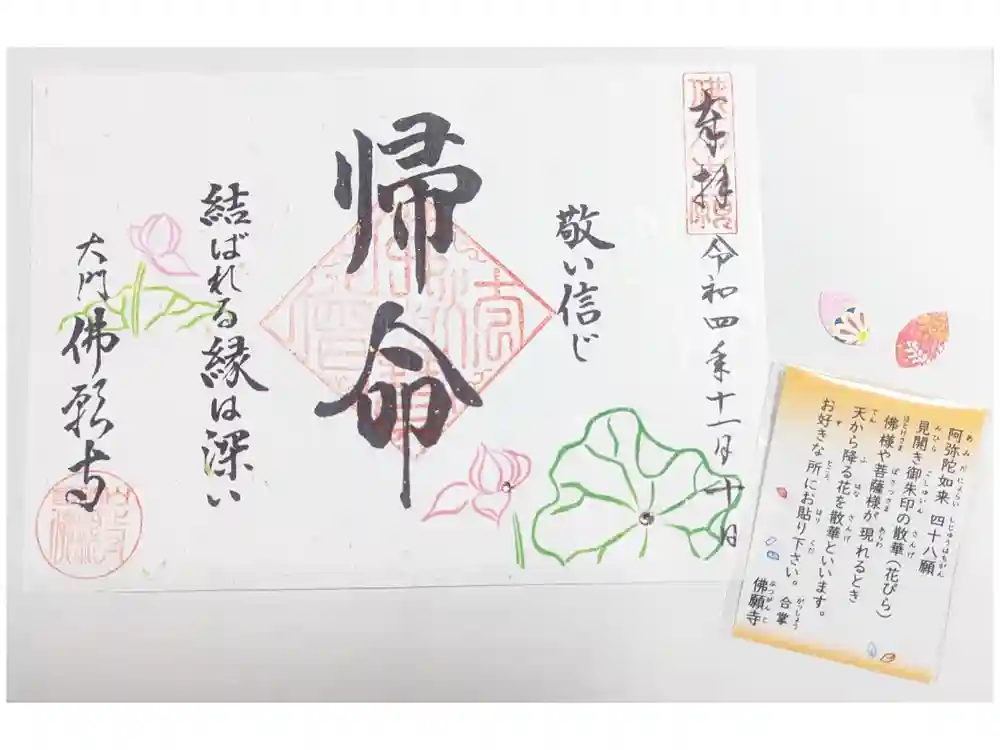 奉拝
令和四年十一月十一日
敬い信じ
帰命
結ばれる縁は深い
大門 佛願寺
阿弥陀如来 四十八願
見開き御朱印の散華（花びら）
佛様や菩薩様が現れるとき
天から降る花を散華といいます。
お好きな所にお貼り下さい。合掌
佛願寺